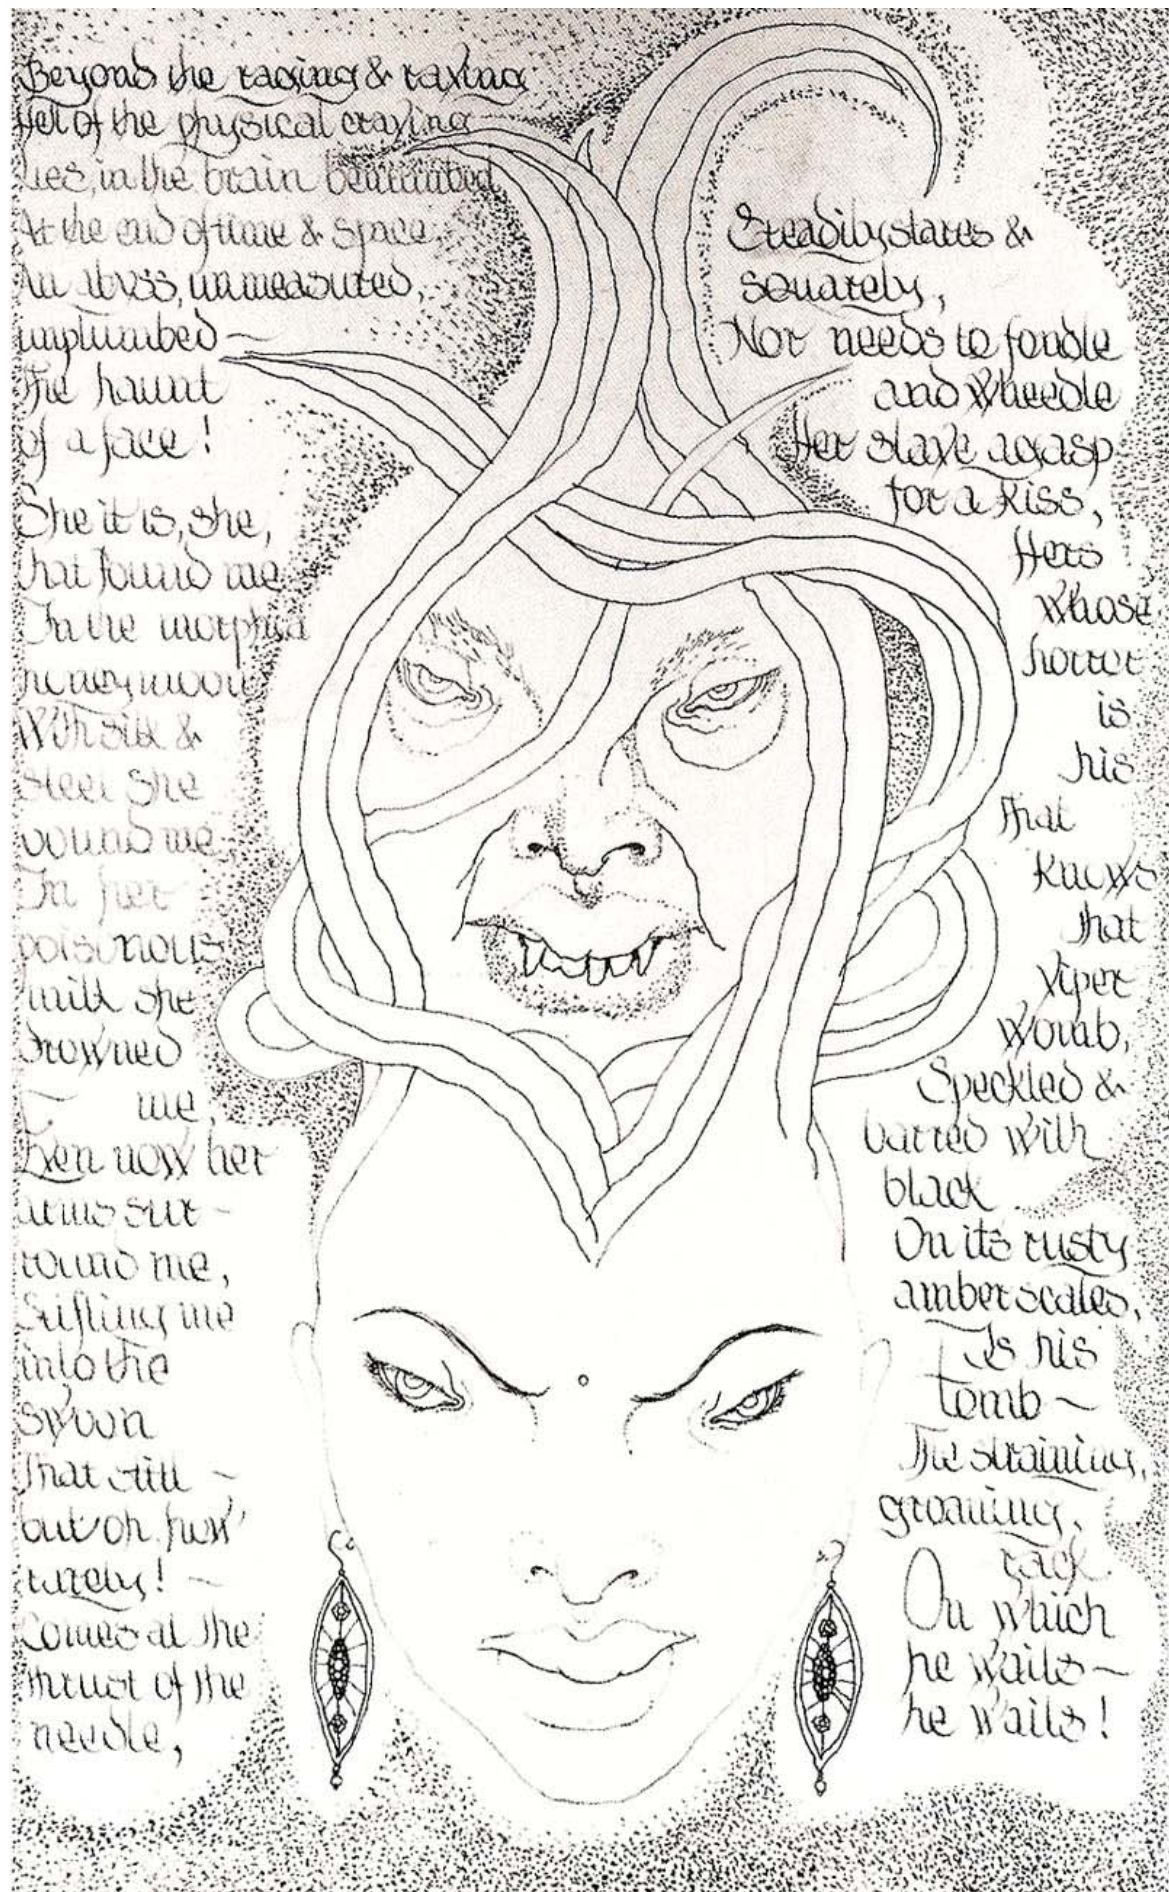 Beyond the raging & raving
Hel of the physical craving
Lies, in the brain benumbed,
At the end of time & space,
An abyss, unmeasured,
unplumbed ~
The haunt
of a face!
She it is, she,
that found me
In the morphia
honeymoon
With silk &
steel she
bound me,
In her
poisonous
milk she
drowned
me,
Even now her
arms sur-
round me,
Stifling me
into the
swoon
That still ~
but oh, how
rarely! ~
Comes at the
thrust of the
needle,
Steadily stares &
squarely,
Nor needs to fondle
and wheedle
Her slave agasp
for a kiss,
Hers
whose
horror
is
his
That
knows
that
viper
womb,
Speckled &
barred with
black
On its rusty
amber scales,
Is his
tomb ~
The straining,
groaning,
rack
On which
he wails ~
he wails!